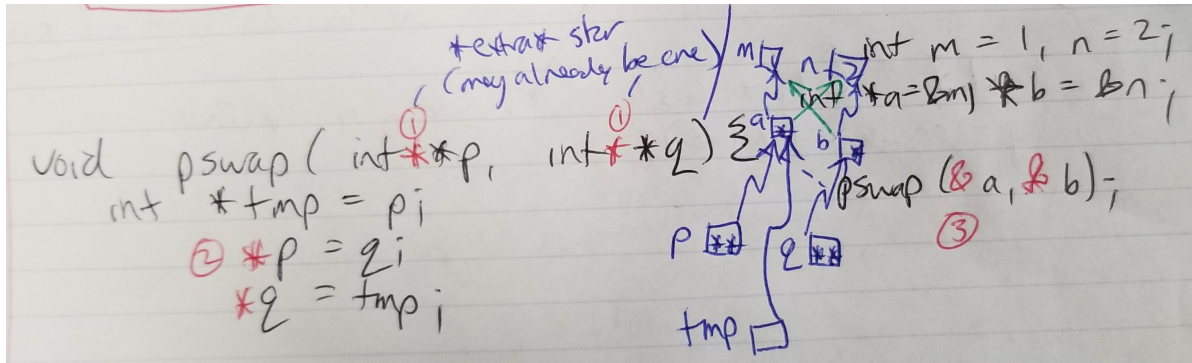 *extra* star
(may already be one)
① ①
void pswap( int**p, int**q) {
int *tmp = p;
② *p = q;
*q = tmp;
m 1 n 2
a * b *
p ** q **
tmp
int m = 1, n = 2;
int *a=&m, *b = &n;
pswap (&a, &b);
③